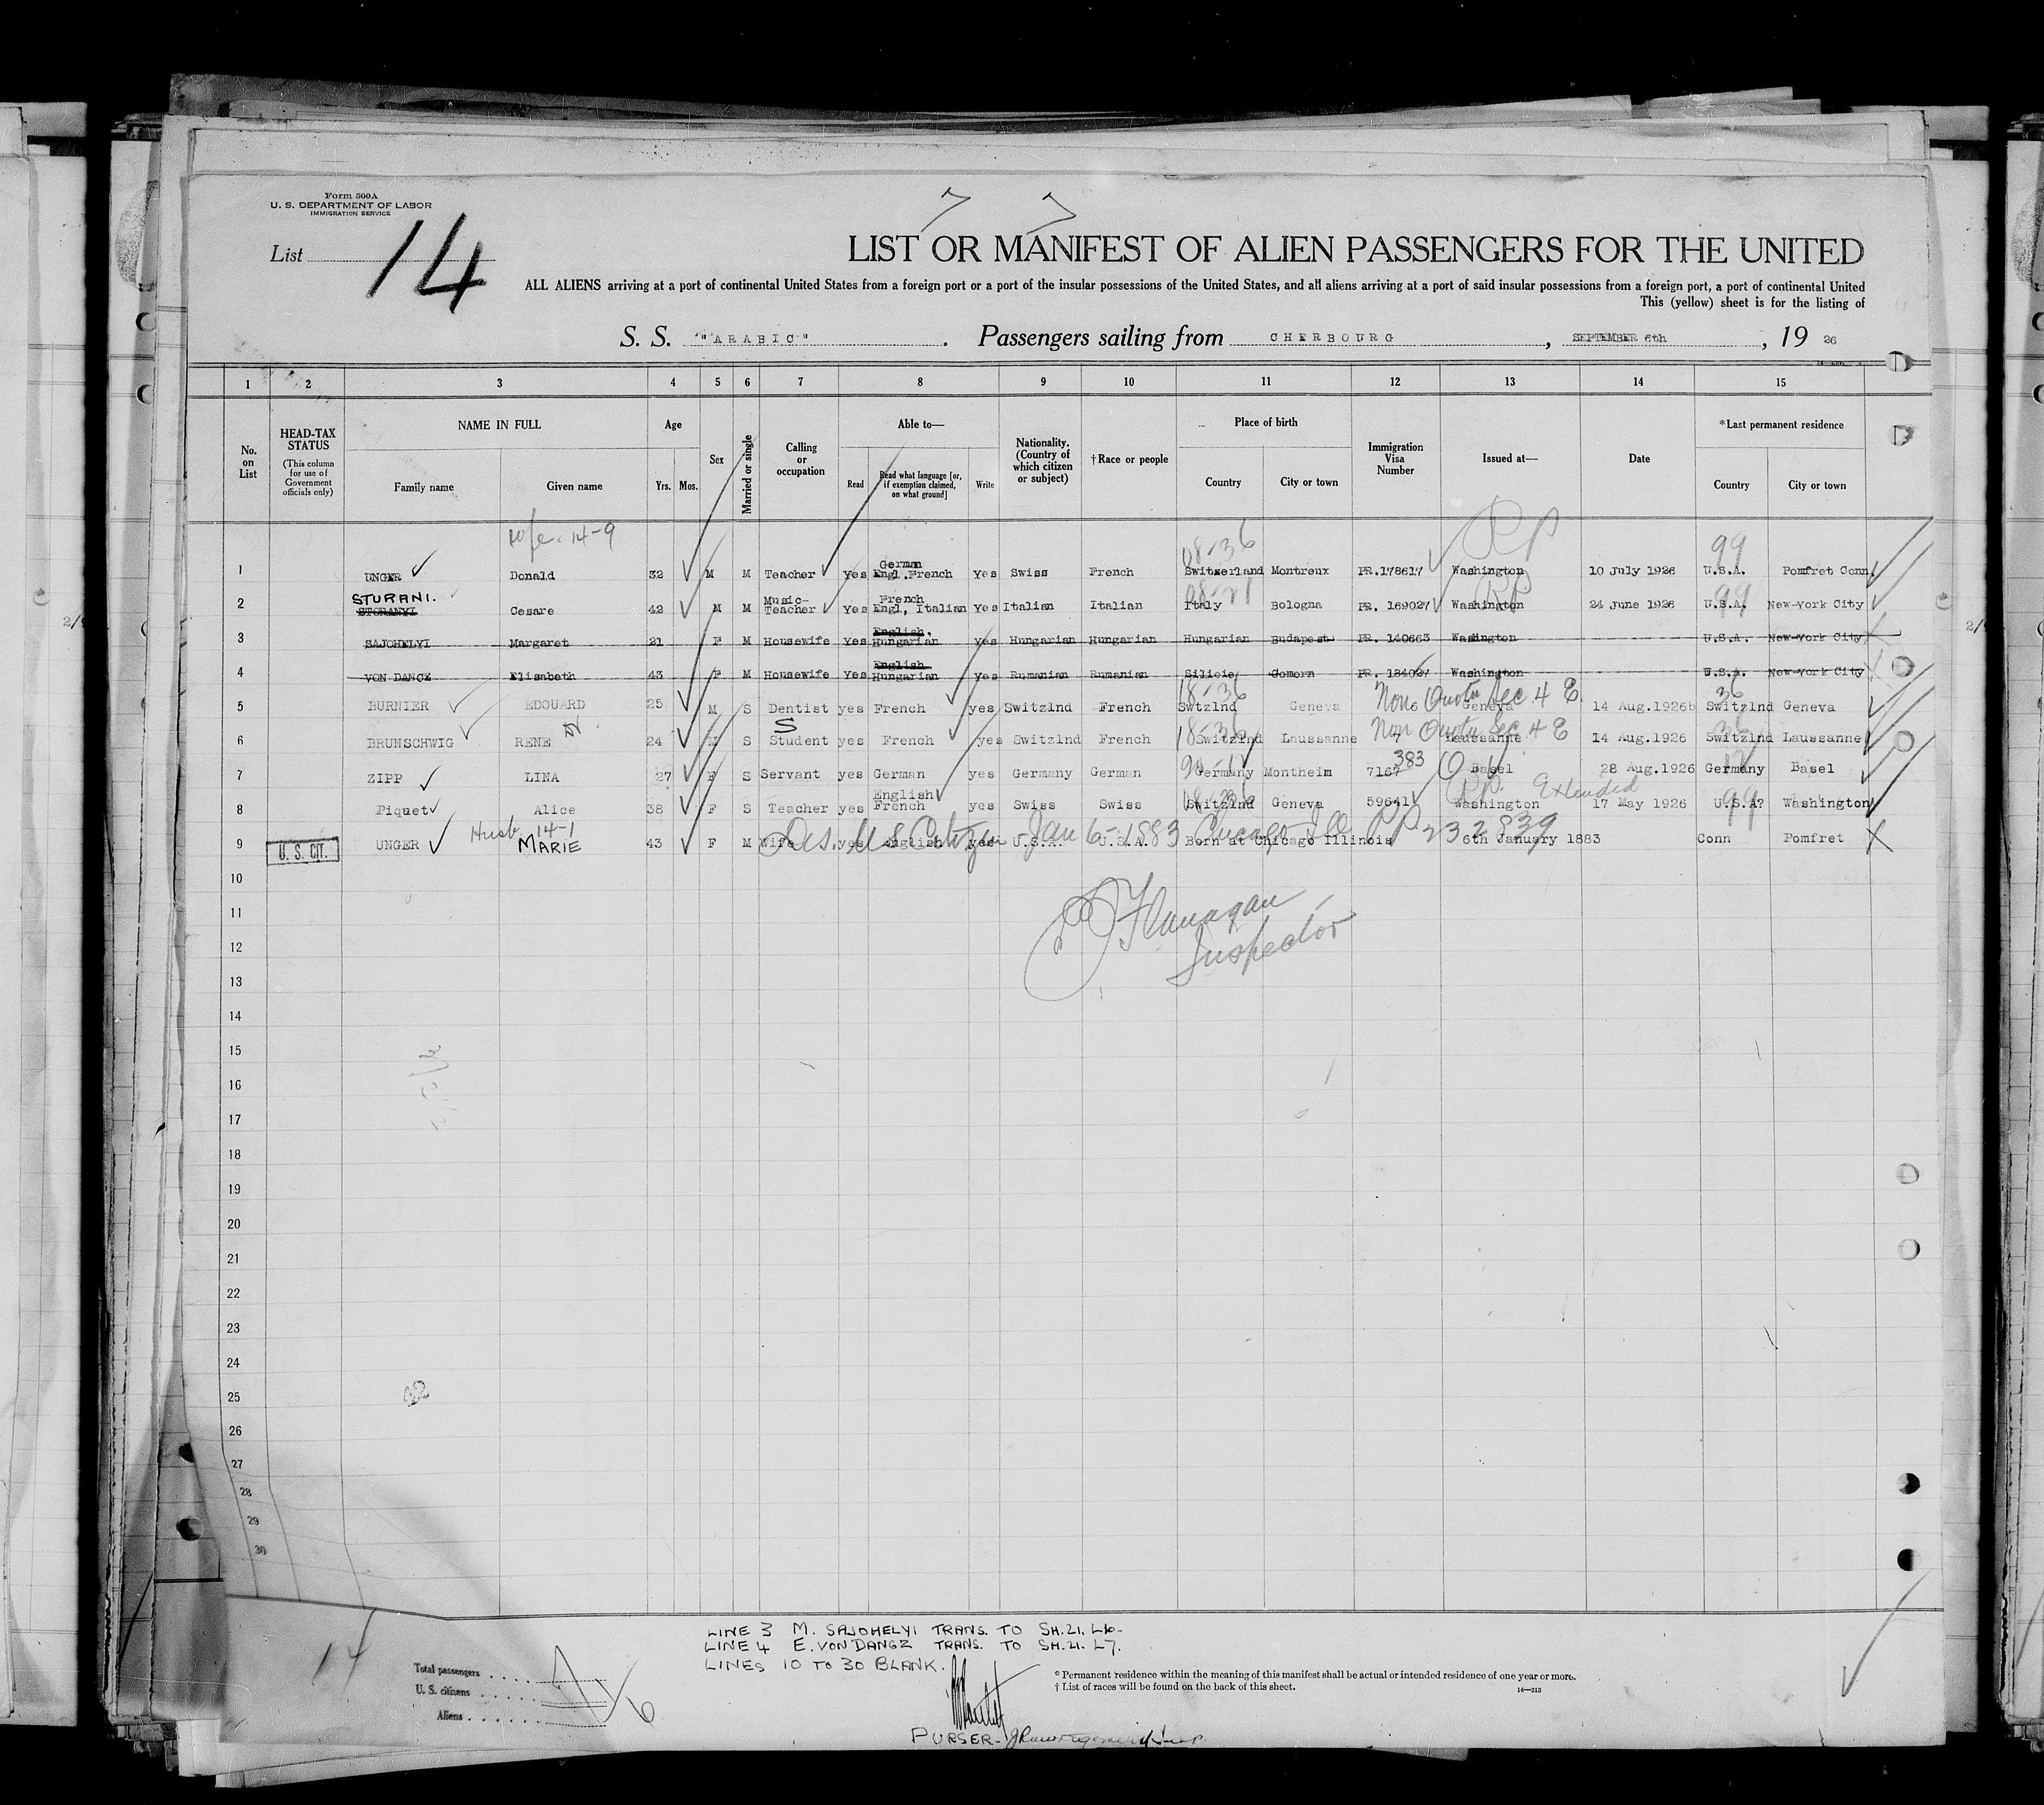 Form 500A
U. S. DEPARTMENT OF LABOR
IMMIGRATION SERVICE
List 14
LIST OR MANIFEST OF ALIEN PASSENGERS FOR THE UNITED
ALL ALIENS arriving at a port of continental United States from a foreign port or a port of the insular possessions of the United States, and all aliens arriving at a port of said insular possessions from a foreign port, a port of continental United
This (yellow) sheet is for the listing of
S. S. "ARABIC" . Passengers sailing from CHERBOURG , SEPTEMBER 6th , 19 26
1 2 3 4 5 6 7 8 9 10 11 12 13 14 15
No. on List
HEAD-TAX STATUS (This column for use of Government officials only)
NAME IN FULL Family name Given name
Age Yrs. Mos.
Sex
Married or single
Calling or occupation
Able to— Read Read what language [or, if exemption claimed, on what ground] Write
Nationality. (Country of which citizen or subject)
†Race or people
Place of birth Country City or town
Immigration Visa Number
Issued at—
Date
*Last permanent residence Country City or town
Wife 14-9 08-36 PP 99
1 UNGER Donald 32 M M Teacher yes German Engl.French Yes Swiss French Switzerland Montreux PR.178617 Washington 10 July 1926 U.S.A. Pomfret Conn
2 STURANI. STORANYI Cesare 42 M M Music-Teacher Yes French Engl, Italian Yes Italian Italian Italy Bologna PR. 169027 Washington 24 June 1926 U.S.A. New-York City
08-21 PP 99
3 SAJOHELYI Margaret 21 F M Housewife Yes English, Hungarian yes Hungarian Hungarian Hungarian Budapest PR. 140663 Washington U.S.A. New-York City
4 VON DANCZ Elisabeth 43 F M Housewife Yes English Hungarian yes Rumanian Rumanian Silicie Comorn PR. 184027 Washington U.S.A. New-York City
18-36 Non Quota Sec 4 E 36
5 BURNIER EDOUARD 25 M S Dentist yes French yes Switzlnd French Swtzlnd Geneva 6 Geneva 14 Aug.1926 Switzlnd Geneva
18-36 Non Quota Sec 4 E 36
6 BRUNSCHWIG RENE 24 M S Student yes French yes Switzlnd French Switzlnd Laussanne 7 Laussanne 14 Aug.1926 Switzlnd Laussanne
7 ZIPP LINA 27 F S Servant yes German yes Germany German Germany Montheim 7167 383 Basel 28 Aug.1926 Germany Basel
8 Piquet Alice 38 F S Teacher yes English French yes Swiss Swiss Switzlnd Geneva 59641 PP Washington Extended 17 May 1926 U.S.A? Washington
99
Husb. 14-1
U. S. CIT.
9 UNGER MARIE 43 F M Wife yes english yes U.S.A. U.S.A. Born at Chicago Illinois 6th January 1883 Conn Pomfret
U S Citizen Jan 6-1883 Chicago Ill PP 232839
10
11
Flanagan
Inspector
12
13
14
15
16
17
18
19
20
21
22
23
24
25
26
27
28
29
30
14
LINE 3 M. SAJOHELYI TRANS. TO SH.21. L6.
LINE 4 E. VON DANGZ TRANS. TO SH.21. L7.
LINES 10 TO 30 BLANK.
Total passengers
U. S. citizens
Aliens
* Permanent residence within the meaning of this manifest shall be actual or intended residence of one year or more.
† List of races will be found on the back of this sheet.
14—213
PURSER.